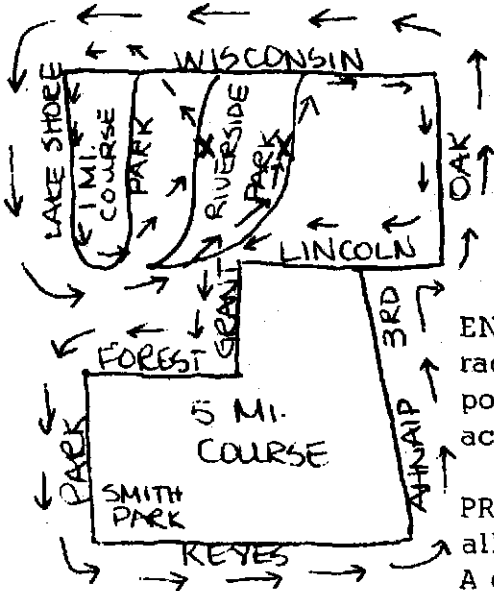 WISCONSIN
LAKE SHORE
1 MI.
COURSE
PARK
RIVERSIDE
PARK
OAK
LINCOLN
GRANT
3RD
FOREST
5 MI.
COURSE
PARK
SMITH
PARK
AHNAIP
KEYES
EN
rac
po
ac
PR
all
A c